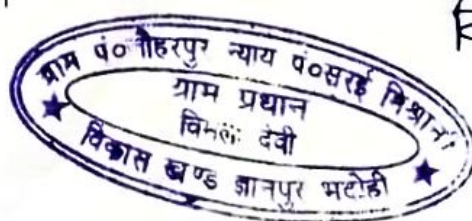 ग्राम पं० गोहरपुर न्याय पं०सरई मिश्रानी
ग्राम प्रधान
विमला देवी
विकास खण्ड ज्ञानपुर भदोही